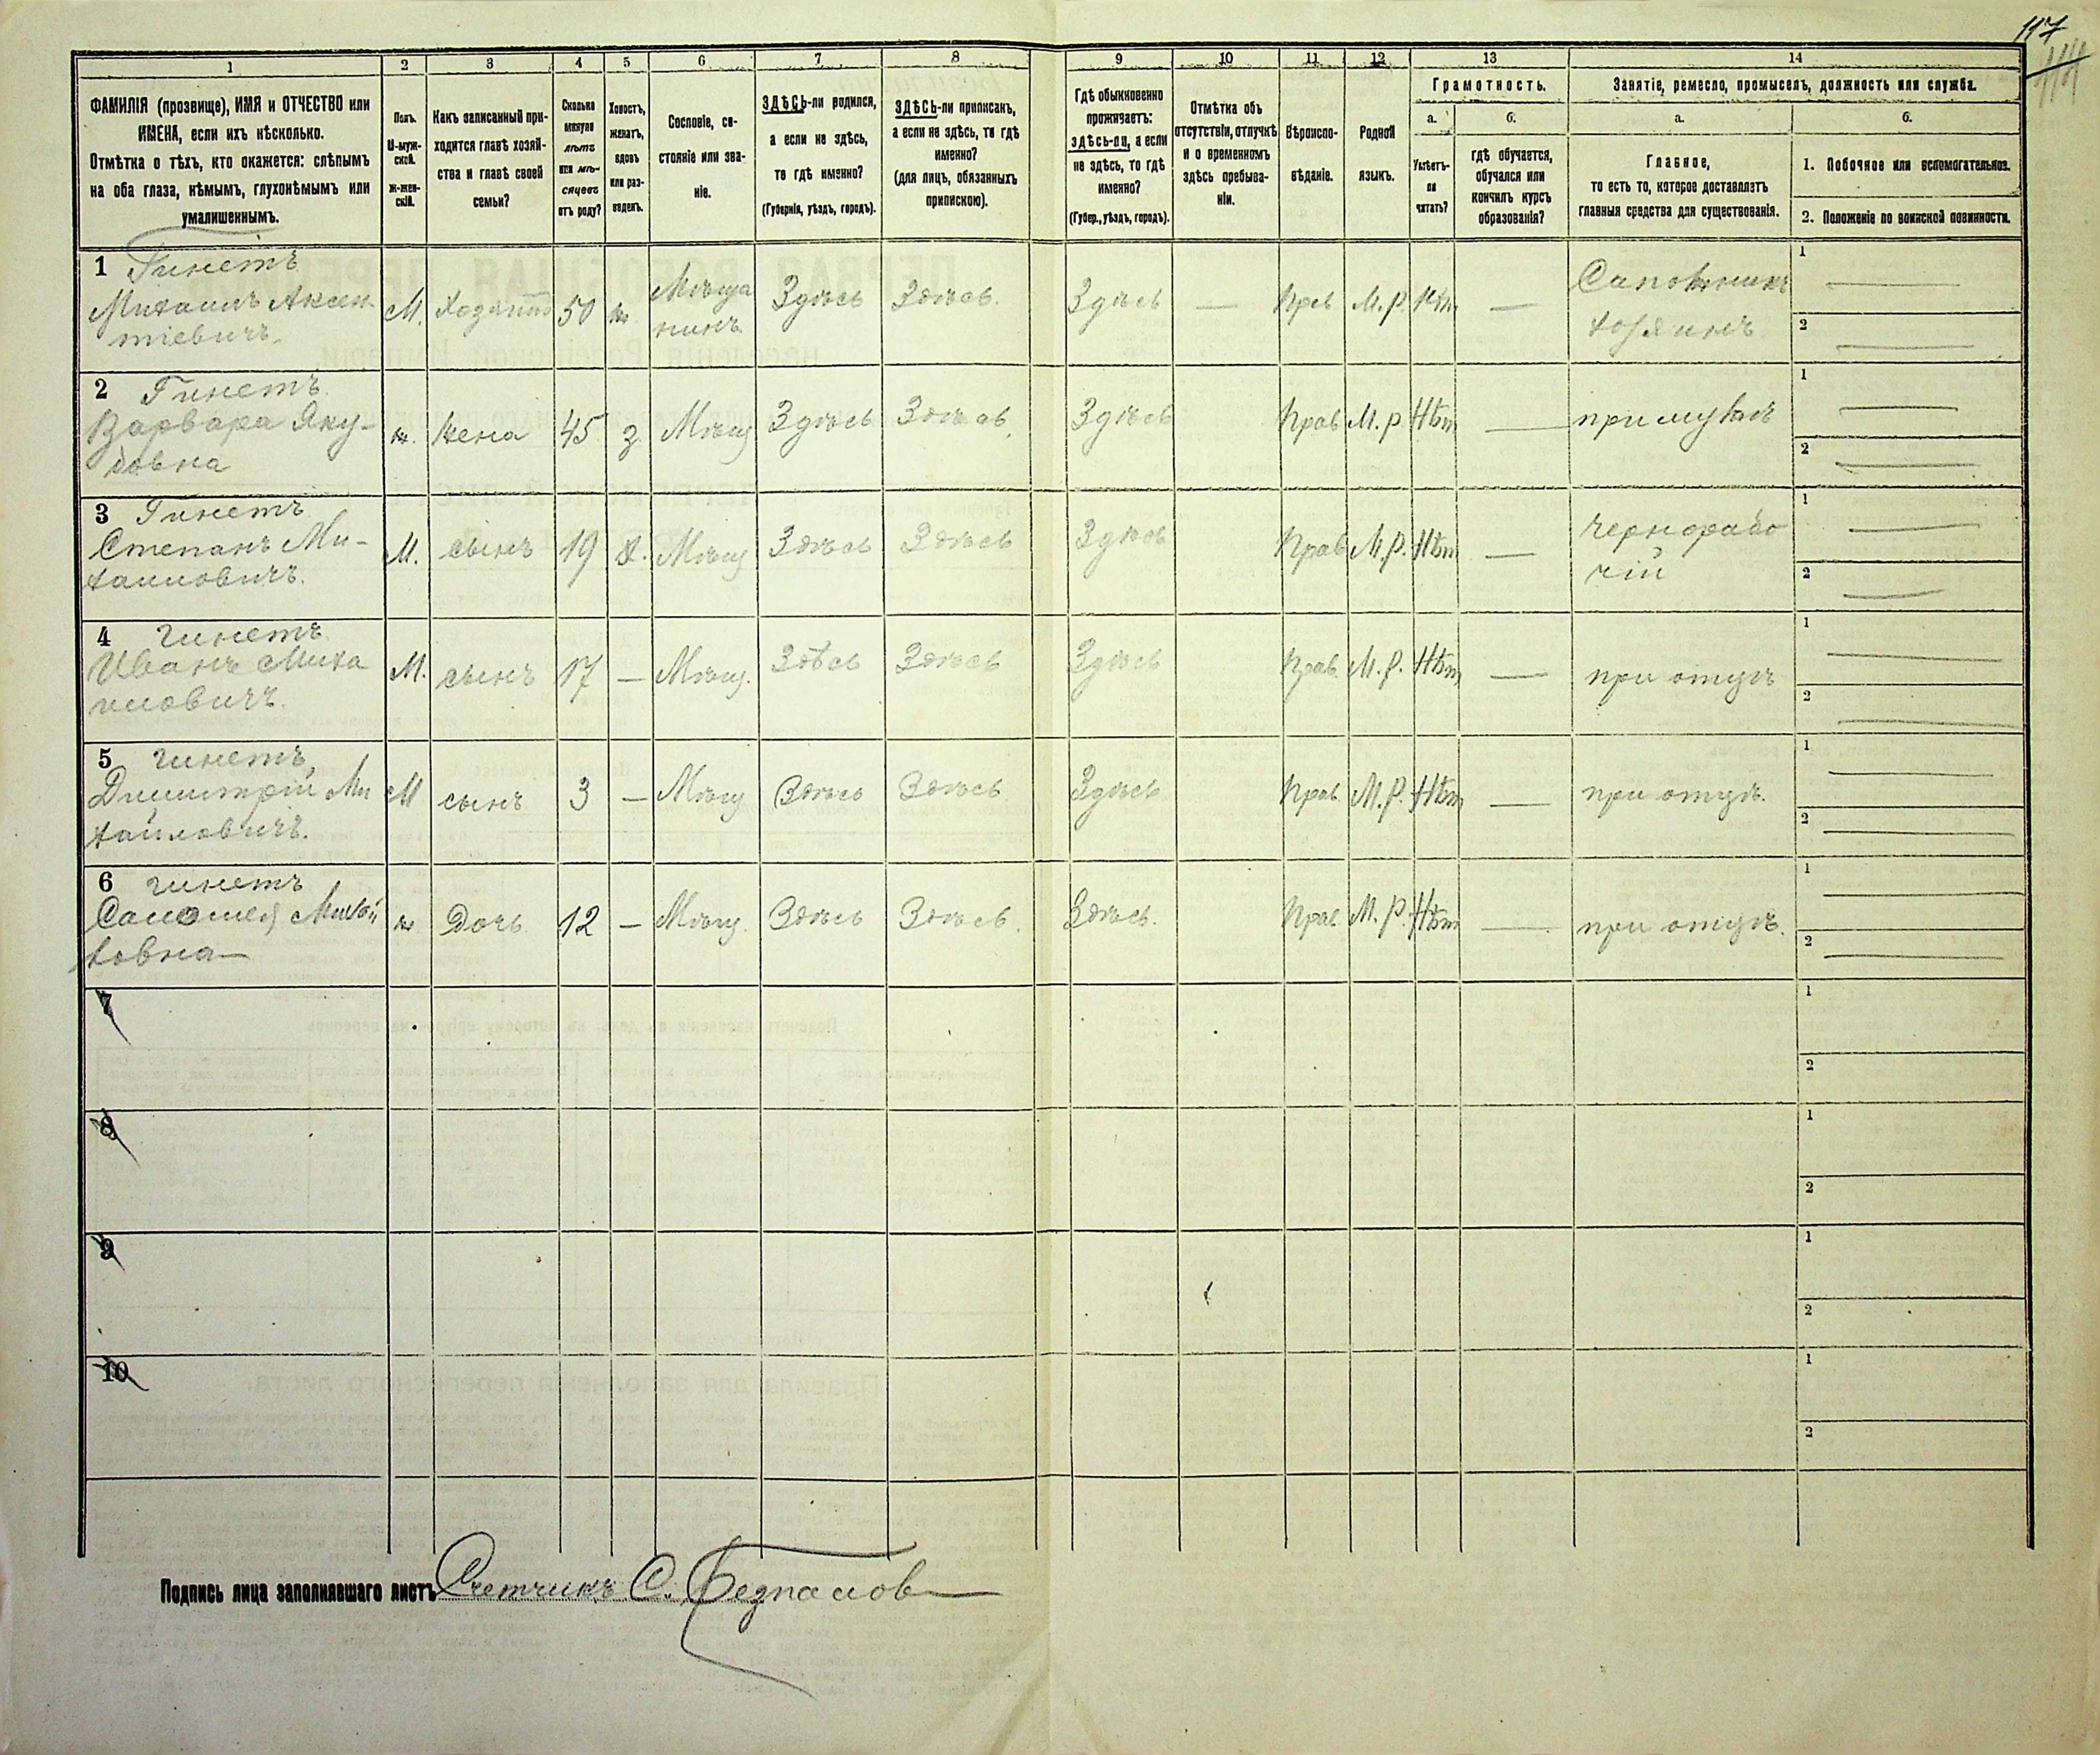 117
1 2 3 4 5 6 7 8 9 10 11 12 13 14
ФАМИЛІЯ (прозвище), ИМЯ и ОТЧЕСТВО или
ИМЕНА, если ихъ нѣсколько.
Отмѣтка о тѣхъ, кто окажется: слѣпымъ
на оба глаза, нѣмымъ, глухонѣмымъ или
умалишеннымъ.
Полъ.
М-муж-
ской.
ж-жен-
скій.
Какъ записанный при-
ходится главѣ хозяй-
ства и главѣ своей
семьи?
Сколько
минуло
лѣтъ
или мѣ-
сяцевъ
отъ роду?
Холостъ,
женатъ,
вдовъ
или раз-
веденъ.
Сословіе, со-
стояніе или зва-
ніе.
ЗДѢСЬ-ли родился,
а если не здѣсь,
то гдѣ именно?
(Губернія, уѣздъ, городъ).
ЗДѢСЬ-ли приписанъ,
а если не здѣсь, то гдѣ
именно?
(для лицъ, обязанныхъ
припискою).
Гдѣ обыкновенно
проживаетъ:
здѣсь-ли, а если
не здѣсь, то гдѣ
именно?
(Губер., уѣздъ, городъ).
Отмѣтка объ
отсутствіи, отлучкѣ
и о временномъ
здѣсь пребыва-
ніи.
Вѣроиспо-
вѣданіе.
Родной
языкъ.
Грамотность.
а.
Умѣетъ-
ли
читать?
б.
гдѣ обучается,
обучался или
кончилъ курсъ
образованія?
Занятіе, ремесло, промыселъ, должность или служба.
а.
Главное,
то есть то, которое доставляетъ
главныя средства для существованія.
б.
1. Побочное или вспомогательное.
2. Положеніе по воинской повинности.
1 Гинетъ
Михаилъ Аксен-
тіевичъ.
М. 50 ж
Мѣща
нинъ
Здѣсь Здѣсь. Здѣсь — М.Р. —
Сапожникъ
хозяинъ
1
2
2 Гинетъ
Варвара Яку-
бовна
ж. жена 45 з Мѣщ Здѣсь Здѣсь. Здѣсь Прав М.Р Нѣт — при мужѣ
1
2
3 Гинетъ
Степанъ Ми-
хаиловичъ.
М. сынъ 19 х. Мѣщ Здѣсь Здѣсь Здѣсь Прав М.Р. Нѣт —
чернорабо
чій
1
2
4 Гинетъ
Иванъ Миха
иловичъ.
М. сынъ 17 — Мѣщ. Здѣсь Здѣсь Здѣсь Прав. М.Р. Нѣт — при отцѣ
1
2
5 Гинетъ
Димитрій Ми
хайловичъ.
М сынъ 3 — Мѣщ Здѣсь Здѣсь Здѣсь Прав. М.Р. Нѣт — при отцѣ.
1
2
6 Гинетъ
Саломея
ж Дочь 12 — Мѣщ. Здѣсь Здѣсь. Здѣсь. Прав. М.Р. Нѣт — при отцѣ.
1
2
7
1
2
8
1
2
9
1
2
10
1
2
Подпись лица заполнявшаго листъ Счетчикъ С.